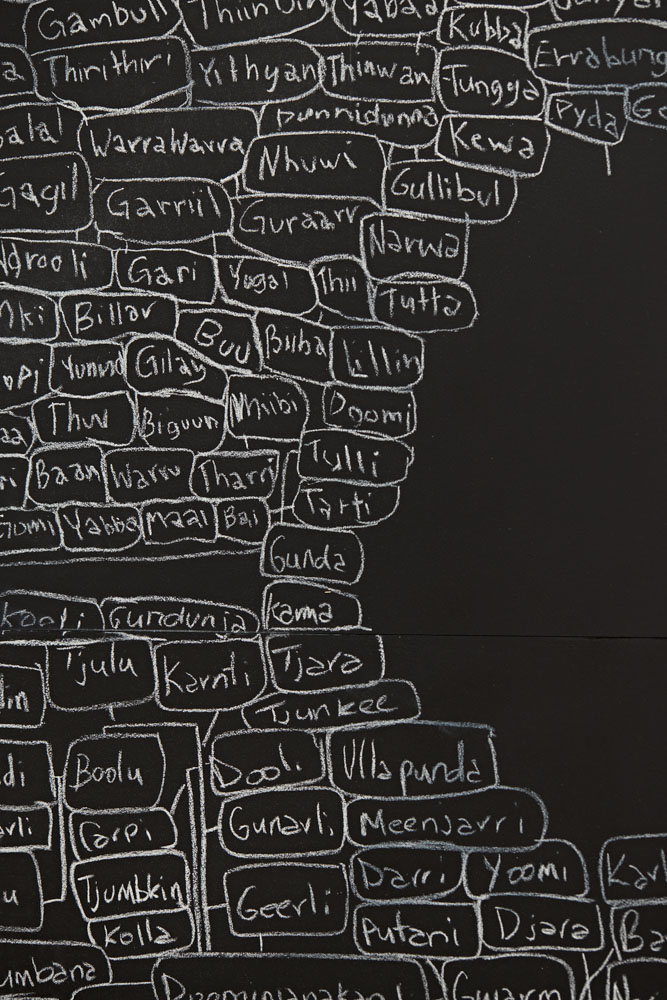 Gambull Thiinuin Yabaa
Kubba
Thirithiri Yithyan Thinwan Tungga Errabung
Pyda
Warrawarra Dunnidunna Kewa
Nhuwi
Gagil Garriil Gullibul
Guraarr
Narwa
Ngrooli Gari Yugal Thii
Tutta
Billar
Buu Biiba Lillin
Gilay
Thuu Biguun Nhiibi Doomi
Tulli
Baan Warru Tharri
Tarti
Gumi Yabba Maal Bai
Gunda
Kaali Gundunja Kanma
Tjulu Karnti Tjara
Tjunkee
Boolu Dooli Ullapunda
Carpi Gunarli Meenjarri
Tjumbkin Darri Yoomi
Geerli
Kolla Putani Djara
umbana